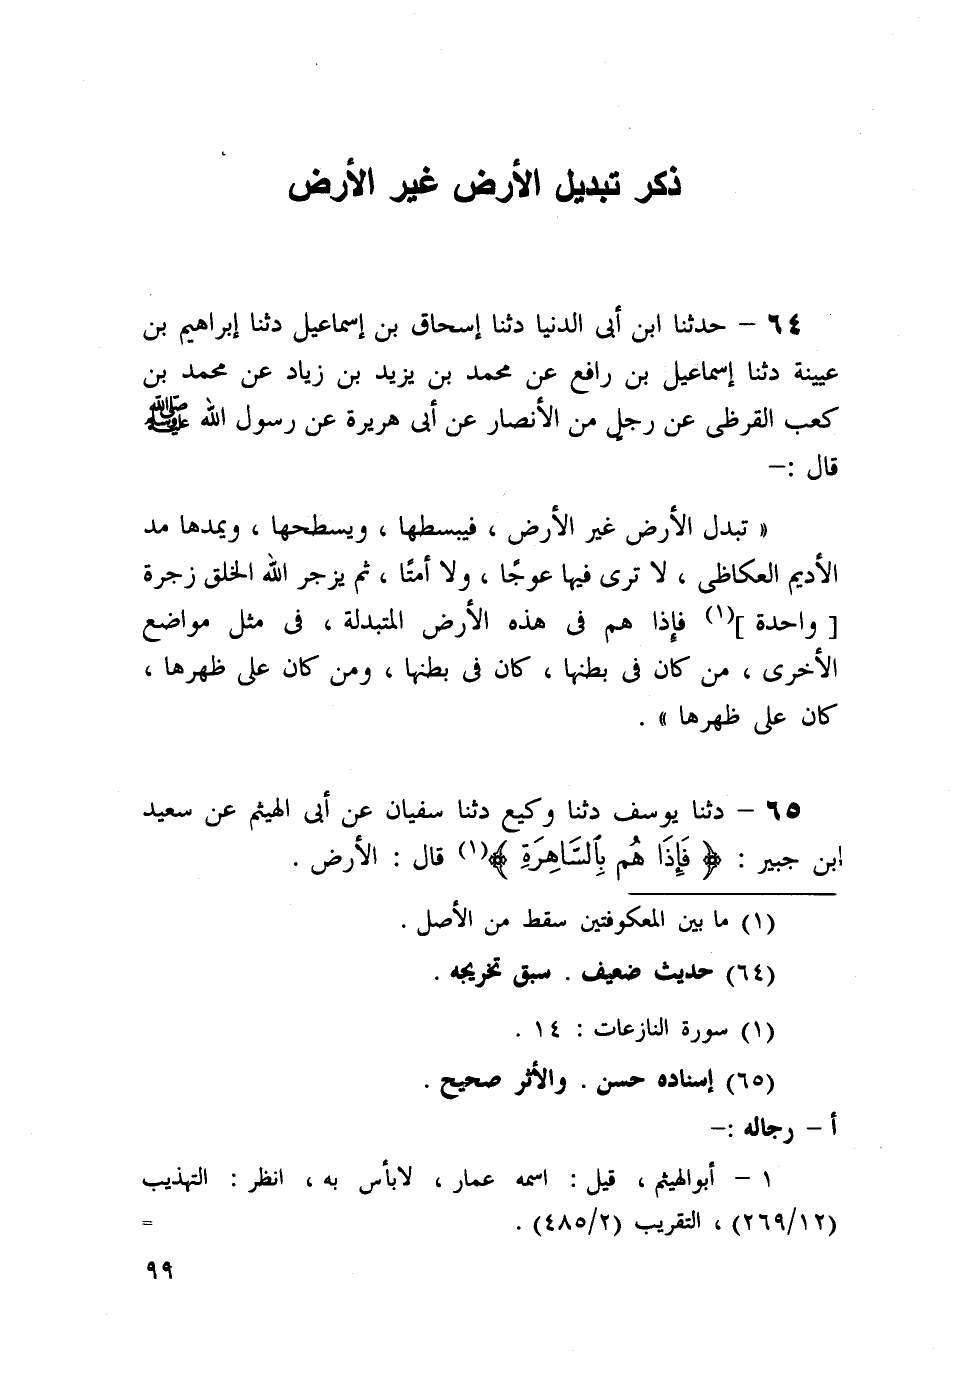 ذكر تبديل الأرض غير الأرض
٦٤ – حدثنا ابن أبى الدنيا دثنا إسحاق بن إسماعيل دثنا إبراهيم بن
عيينة دثنا إسماعيل بن رافع عن محمد بن يزيد بن زياد عن محمد بن
كعب القرظى عن رجل من الأنصار عن أبى هريرة عن رسول الله ﷺ
قال :–
« تبدل الأرض غير الأرض ، فيبسطها ، ويسطحها ، ويمدها مد
الأديم العكاظى ، لا ترى فيها عوجًا ، ولا أمتًا ، ثم يزجر الله الخلق زجرة
[ واحدة ](١) فإذا هم فى هذه الأرض المتبدلة ، فى مثل مواضع
الأخرى ، من كان فى بطنها ، كان فى بطنها ، ومن كان على ظهرها ،
كان على ظهرها » .
٦٥ – دثنا يوسف دثنا وكيع دثنا سفيان عن أبى الهيثم عن سعيد
ابن جبير : ﴿ فَإِذَا هُم بِٱلسَّاهِرَةِ ﴾(١) قال : الأرض .
(١) ما بين المعكوفتين سقط من الأصل .
(٦٤) حديث ضعيف . سبق تخريجه .
(١) سورة النازعات : ١٤ .
(٦٥) إسناده حسن . والأثر صحيح .
أ – رجاله :–
١ – أبوالهيثم ، قيل : اسمه عمار ، لابأس به ، انظر : التهذيب
(٢٦٩/١٢) ، التقريب (٤٨٥/٢) . =
٩٩